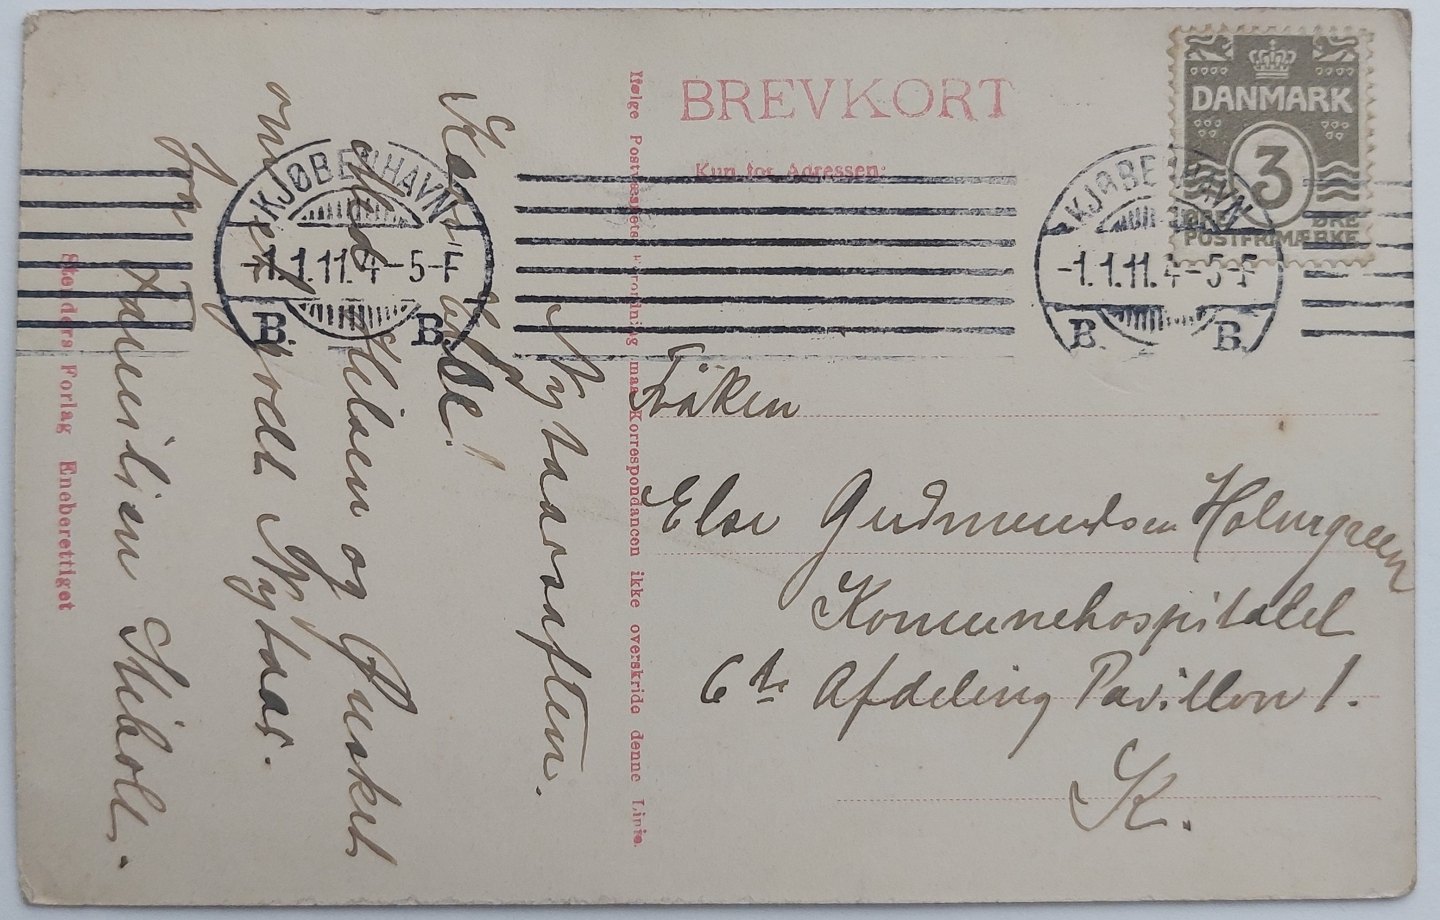 BREVKORT
Kun for Adressen:
DANMARK
3
ØRE ØRE
POSTFRIMÆRKE
KJØBENHAVN
-1.1.11.4-5-F
B. B.
KJØBENHAVN
-1.1.11.4-5-F
B. B.
Ifølge Postvæsnets Forordning maa Korrespondancen ikke overskride denne Linie.
Frøken
Else Gudmundsen Holmgreen
Komunehospitalet
6te Afdeling Pavillon 1.
K.
Nytaarsaften.
Kære Else!
Med Hilsen og Ønsket
om et godt Nytaar.
fra
Familien Skiboll.
Stenders Forlag Eneberettiget